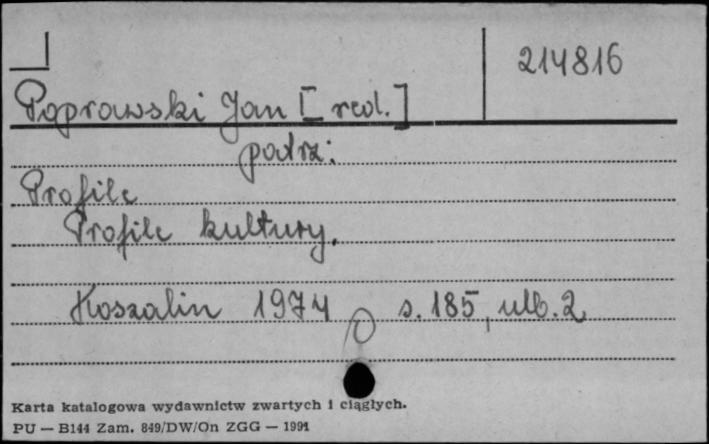 214816
Poprawski Jan [red.]
patrz:
Profile
Profile kultury.
Koszalin 1974 s. 185, ulb. 2
Karta katalogowa wydawnictw zwartych i ciągłych.
PU — B144 Zam. 849/DW/On ZGG — 1991